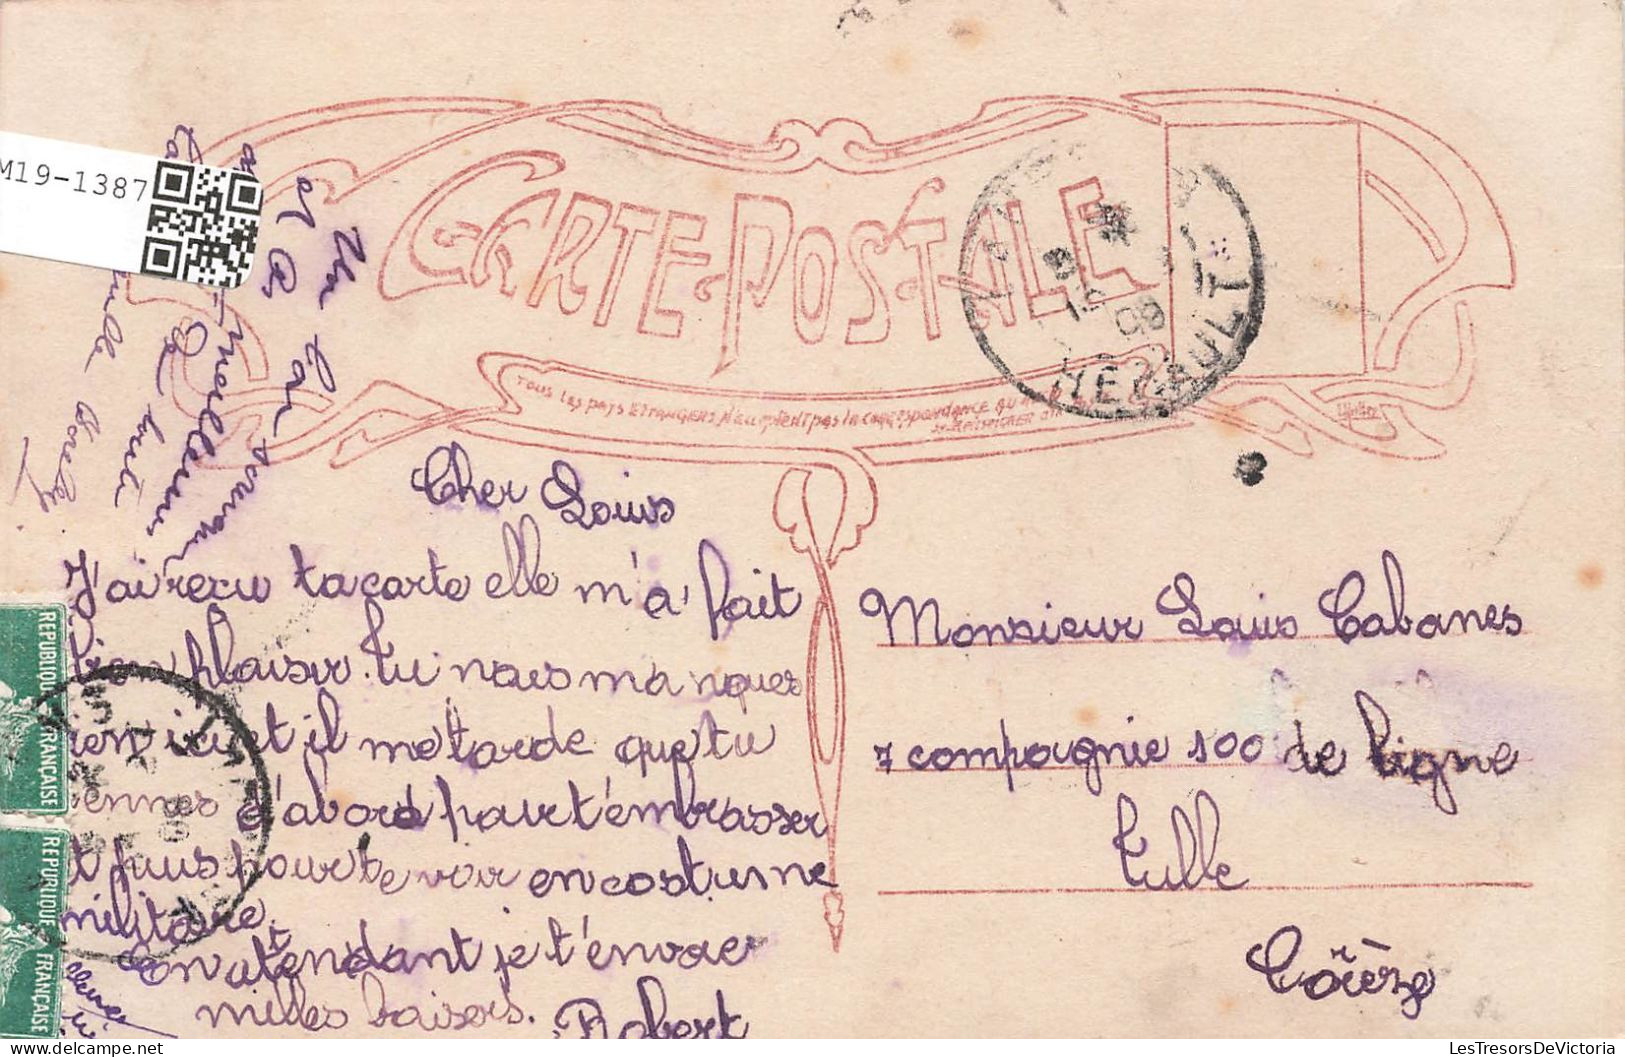 M19-1387
CARTE POSTALE
TOUS LES PAYS ETRANGERS N'ACCEPTENT PAS LA CORRESPONDANCE AU
SE RENSEIGNER A LA
HERAULT
Cher Louis
J'ai reçu ta carte elle m'a fait
bien plaisir. tu nous manques
ici et il me tarde que tu
viennes d'abord pour t'embrasser
et puis pour te voir en costume
militaire.
En attendant je t'envoie
milles baisers. Robert
Monsieur Louis Cabanes
7 compagnie 100 de ligne
Tulle
Corèze
REPUBLIQUE FRANÇAISE
REPUBLIQUE FRANÇAISE
LesTresorsDeVictoria